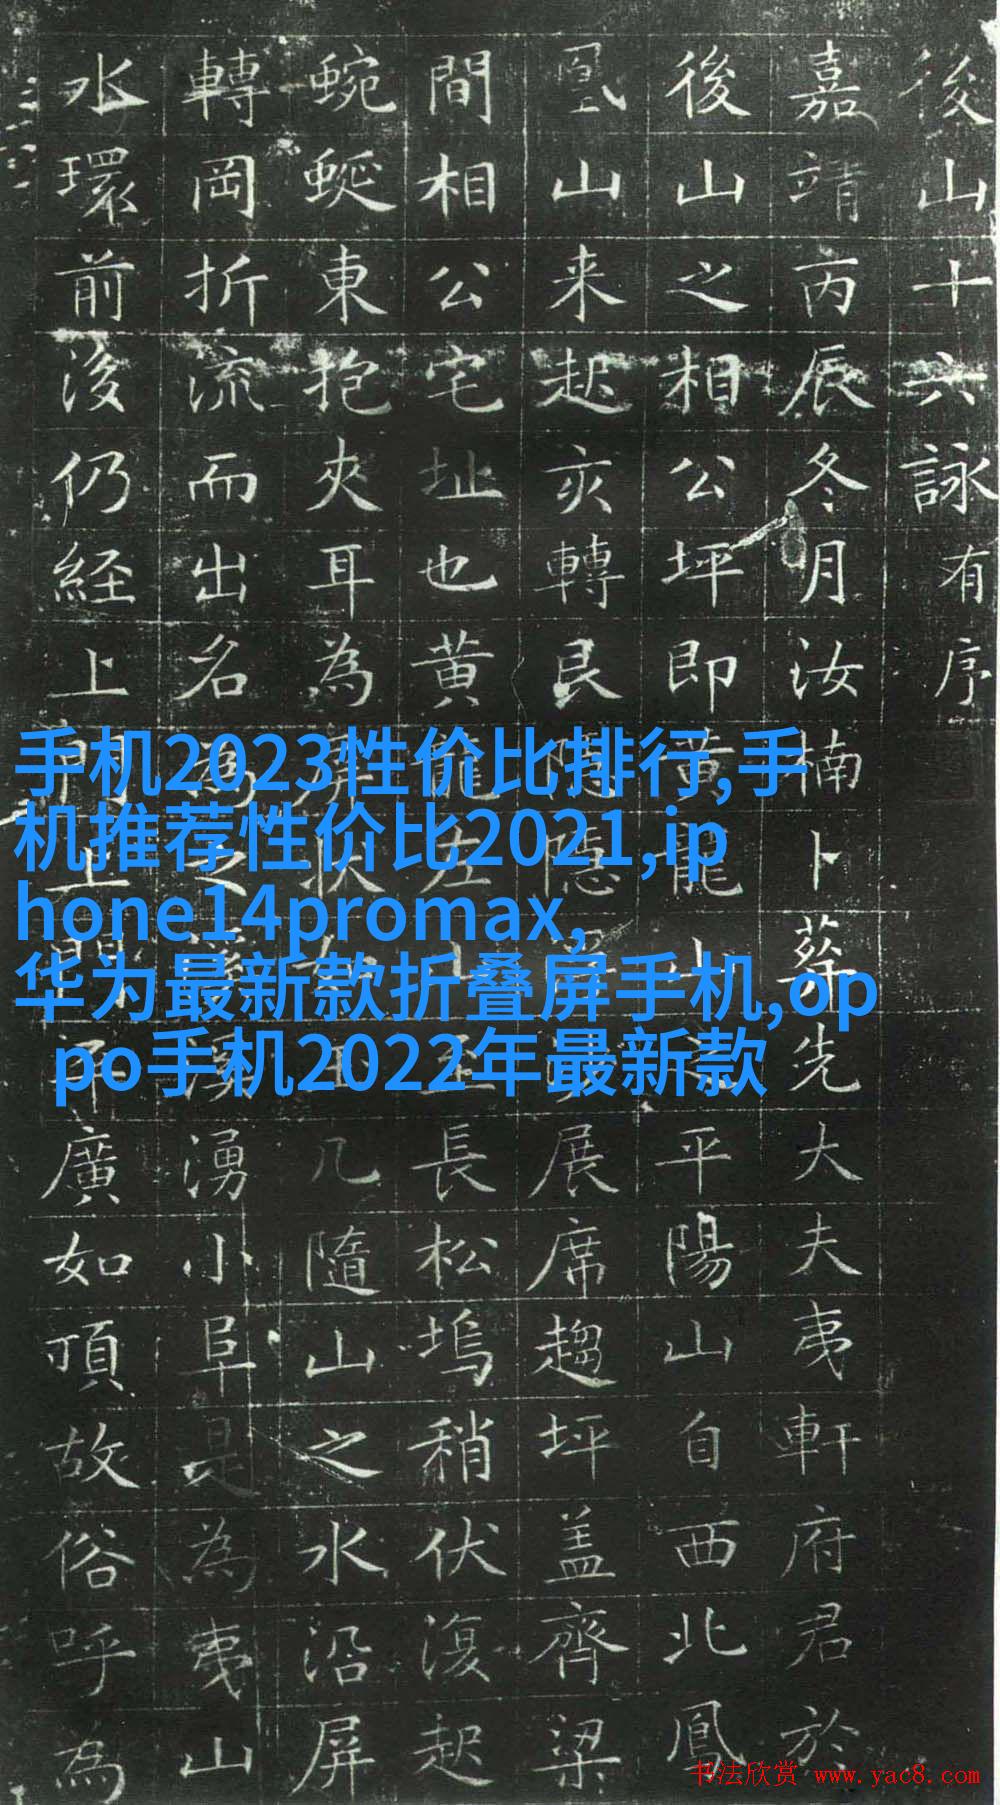 後山十六詠有序
嘉靖丙辰冬月汝楠卜葬先大夫夷軒府君於
後山之相公坪即黄龍山平陽山自西北鳳
凰山来起亥轉艮隱隱展席趨坪盖齊梁
間相公宅址也黄龍左山至長松塢稍伏復起
蜿蜒東抱夾耳為屏狀几隨山之水沿屏
轉岡折流而出名為之溪湧小阜是為夷山
水環前後仍経上門上廣如頂故俗呼為
手机2023性价比排行,手
机推荐性价比2021,ip
hone14promax,
华为最新款折叠屏手机,op
po手机2022年最新款
书法欣赏 www.yac8.com